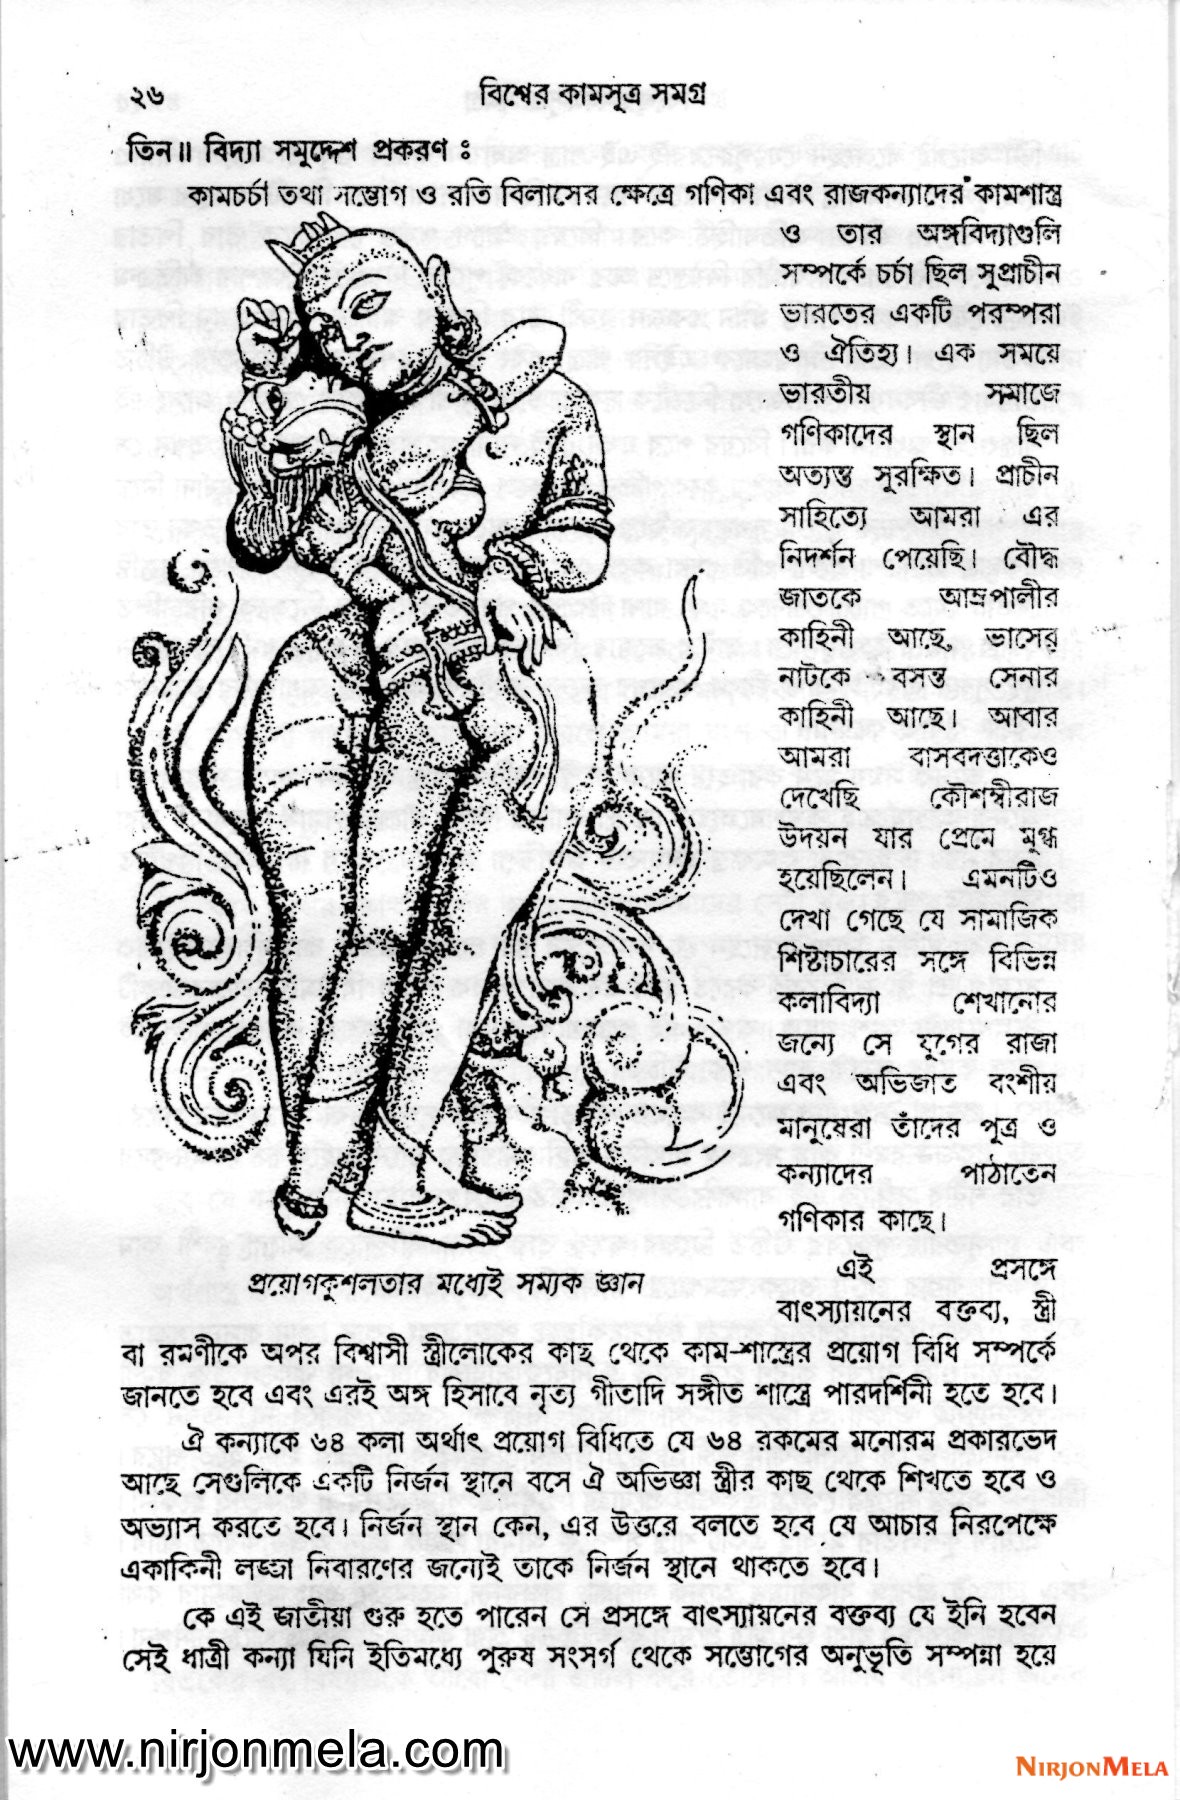 ২৬
বিশ্বের কামসূত্র সমগ্র
তিন॥ বিদ্যা সমুদ্দেশ প্রকরণ ঃ
কামচর্চা তথা সম্ভোগ ও রতি বিলাসের ক্ষেত্রে গণিকা এবং রাজকন্যাদের কামশাস্ত্র
ও তার অঙ্গবিদ্যাগুলি
সম্পর্কে চর্চা ছিল সুপ্রাচীন
ভারতের একটি পরম্পরা
ও ঐতিহ্য। এক সময়ে
ভারতীয় সমাজে
গণিকাদের স্থান ছিল
অত্যন্ত সুরক্ষিত। প্রাচীন
সাহিত্যে আমরা এর
নিদর্শন পেয়েছি। বৌদ্ধ
জাতকে আম্রপালীর
কাহিনী আছে, ভাসের
নাটকে বসন্ত সেনার
কাহিনী আছে। আবার
আমরা বাসবদত্তাকেও
দেখেছি কৌশম্বীরাজ
উদয়ন যার প্রেমে মুগ্ধ
হয়েছিলেন। এমনটিও
দেখা গেছে যে সামাজিক
শিষ্টাচারের সঙ্গে বিভিন্ন
কলাবিদ্যা শেখানোর
জন্যে সে যুগের রাজা
এবং অভিজাত বংশীয়
মানুষেরা তাঁদের পুত্র ও
কন্যাদের পাঠাতেন
গণিকার কাছে।
প্রয়োগকুশলতার মধ্যেই সম্যক জ্ঞান
এই প্রসঙ্গে
বাৎস্যায়নের বক্তব্য, স্ত্রী
বা রমণীকে অপর বিশ্বাসী স্ত্রীলোকের কাছ থেকে কাম-শাস্ত্রের প্রয়োগ বিধি সম্পর্কে
জানতে হবে এবং এরই অঙ্গ হিসাবে নৃত্য গীতাদি সঙ্গীত শাস্ত্রে পারদর্শিনী হতে হবে।
ঐ কন্যাকে ৬৪ কলা অর্থাৎ প্রয়োগ বিধিতে যে ৬৪ রকমের মনোরম প্রকারভেদ
আছে সেগুলিকে একটি নির্জন স্থানে বসে ঐ অভিজ্ঞা স্ত্রীর কাছ থেকে শিখতে হবে ও
অভ্যাস করতে হবে। নির্জন স্থান কেন, এর উত্তরে বলতে হবে যে আচার নিরপেক্ষে
একাকিনী লজ্জা নিবারণের জন্যেই তাকে নির্জন স্থানে থাকতে হবে।
কে এই জাতীয়া গুরু হতে পারেন সে প্রসঙ্গে বাৎস্যায়নের বক্তব্য যে ইনি হবেন
সেই ধাত্রী কন্যা যিনি ইতিমধ্যে পুরুষ সংসর্গ থেকে সম্ভোগের অনুভূতি সম্পন্না হয়ে
www.nirjonmela.com
NIRJONMELA